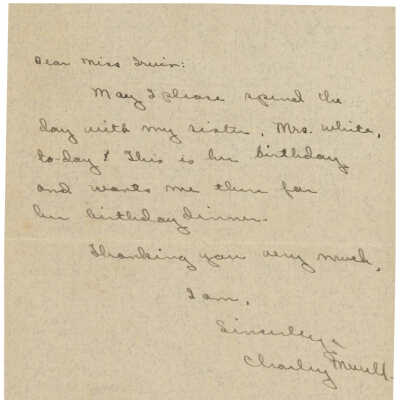 Dear Miss Irwin:
May I please spend the
day with my sister, Mrs. White,
to-day? This is her birthday
and wants me there for
her birthday dinner.
Thanking you very much,
I am,
Sincerely,
Charley